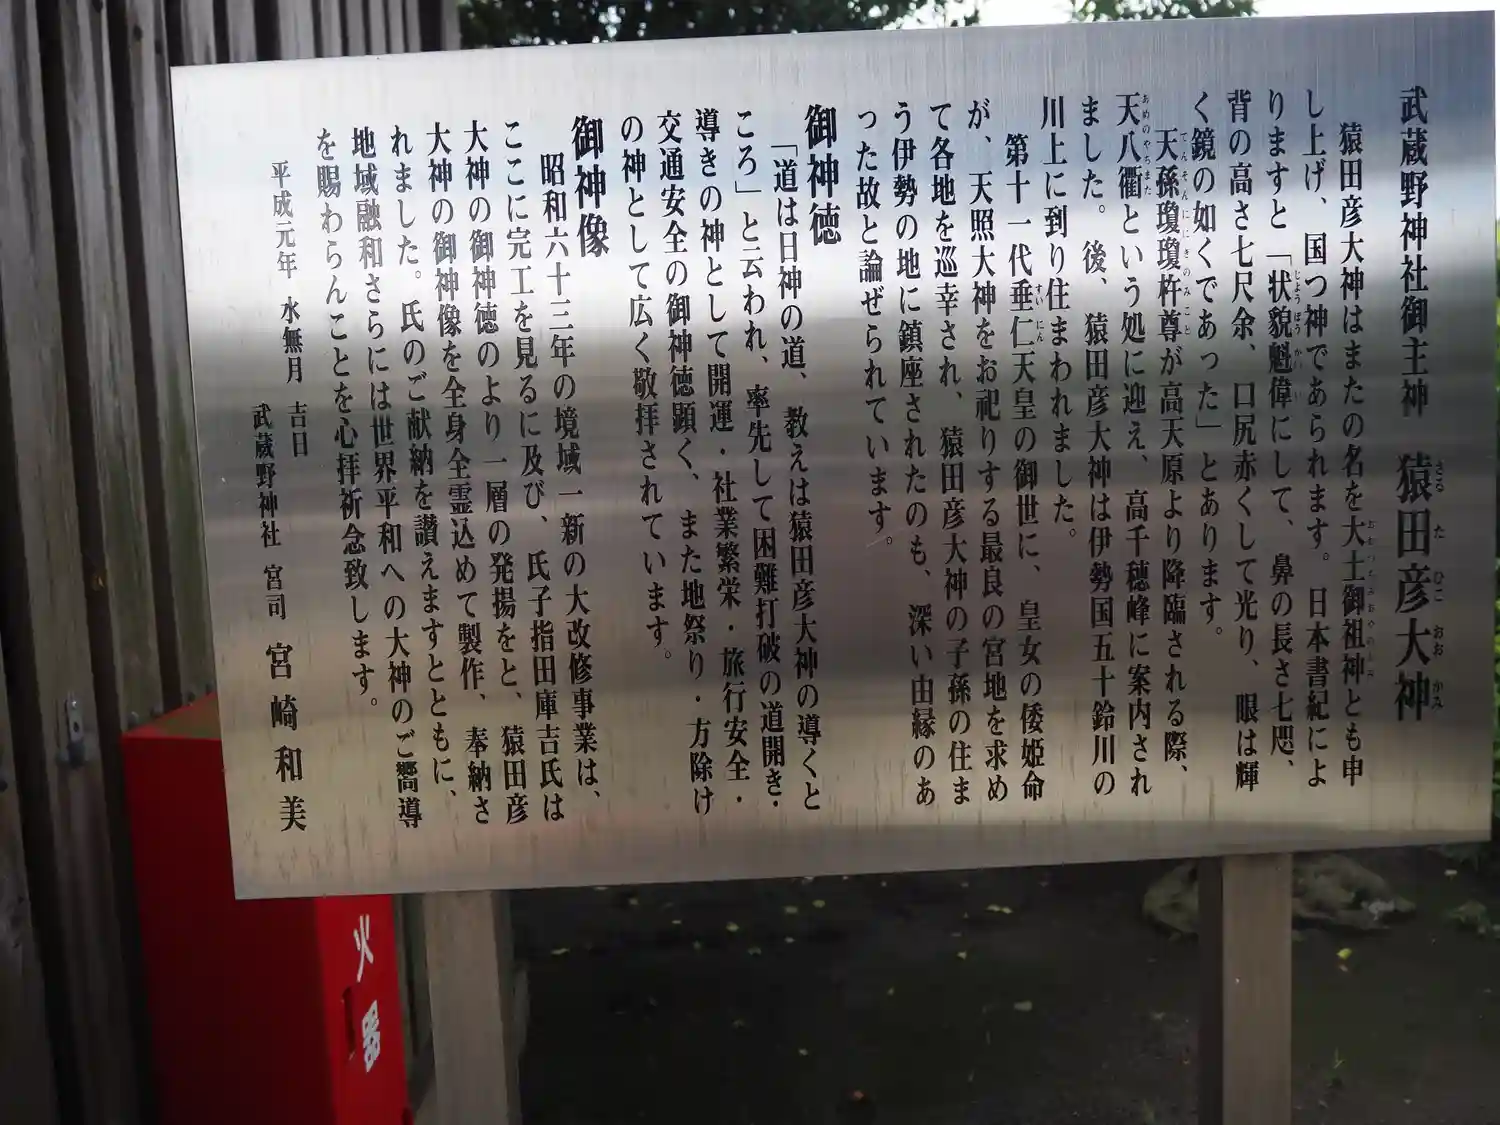 武蔵野神社御主神　猿田彦大神
猿田彦大神はまたの名を大土御祖神とも申
し上げ、国つ神であられます。日本書紀によ
りますと「状貌魁偉にして、鼻の長さ七咫、
背の高さ七尺余、口尻赤くして光り、眼は輝
く鏡の如くであった」とあります。
天孫瓊瓊杵尊が高天原より降臨される際、
天八衢という処に迎え、高千穂峰に案内され
ました。後、猿田彦大神は伊勢国五十鈴川の
川上に到り住まわれました。
第十一代垂仁天皇の御世に、皇女の倭姫命
が、天照大神をお祀りする最良の宮地を求め
て各地を巡幸され、猿田彦大神の子孫の住ま
う伊勢の地に鎮座されたのも、深い由縁のあ
った故と論ぜられています。
御神徳
「道は日神の道、教えは猿田彦大神の導くと
ころ」と云われ、率先して困難打破の道開き・
導きの神として開運・社業繁栄・旅行安全・
交通安全の御神徳顕く、また地祭り・方除け
の神として広く敬拝されています。
御神像
昭和六十三年の境域一新の大改修事業は、
ここに完工を見るに及び、氏子指田庫吉氏は
大神の御神徳のより一層の発揚をと、猿田彦
大神の御神像を全身全霊込めて製作、奉納さ
れました。氏のご献納を讃えますとともに、
地域融和さらには世界平和への大神のご嚮導
を賜わらんことを心拝祈念致します。
平成元年　水無月　吉日
武蔵野神社　宮司　宮崎和美
火器